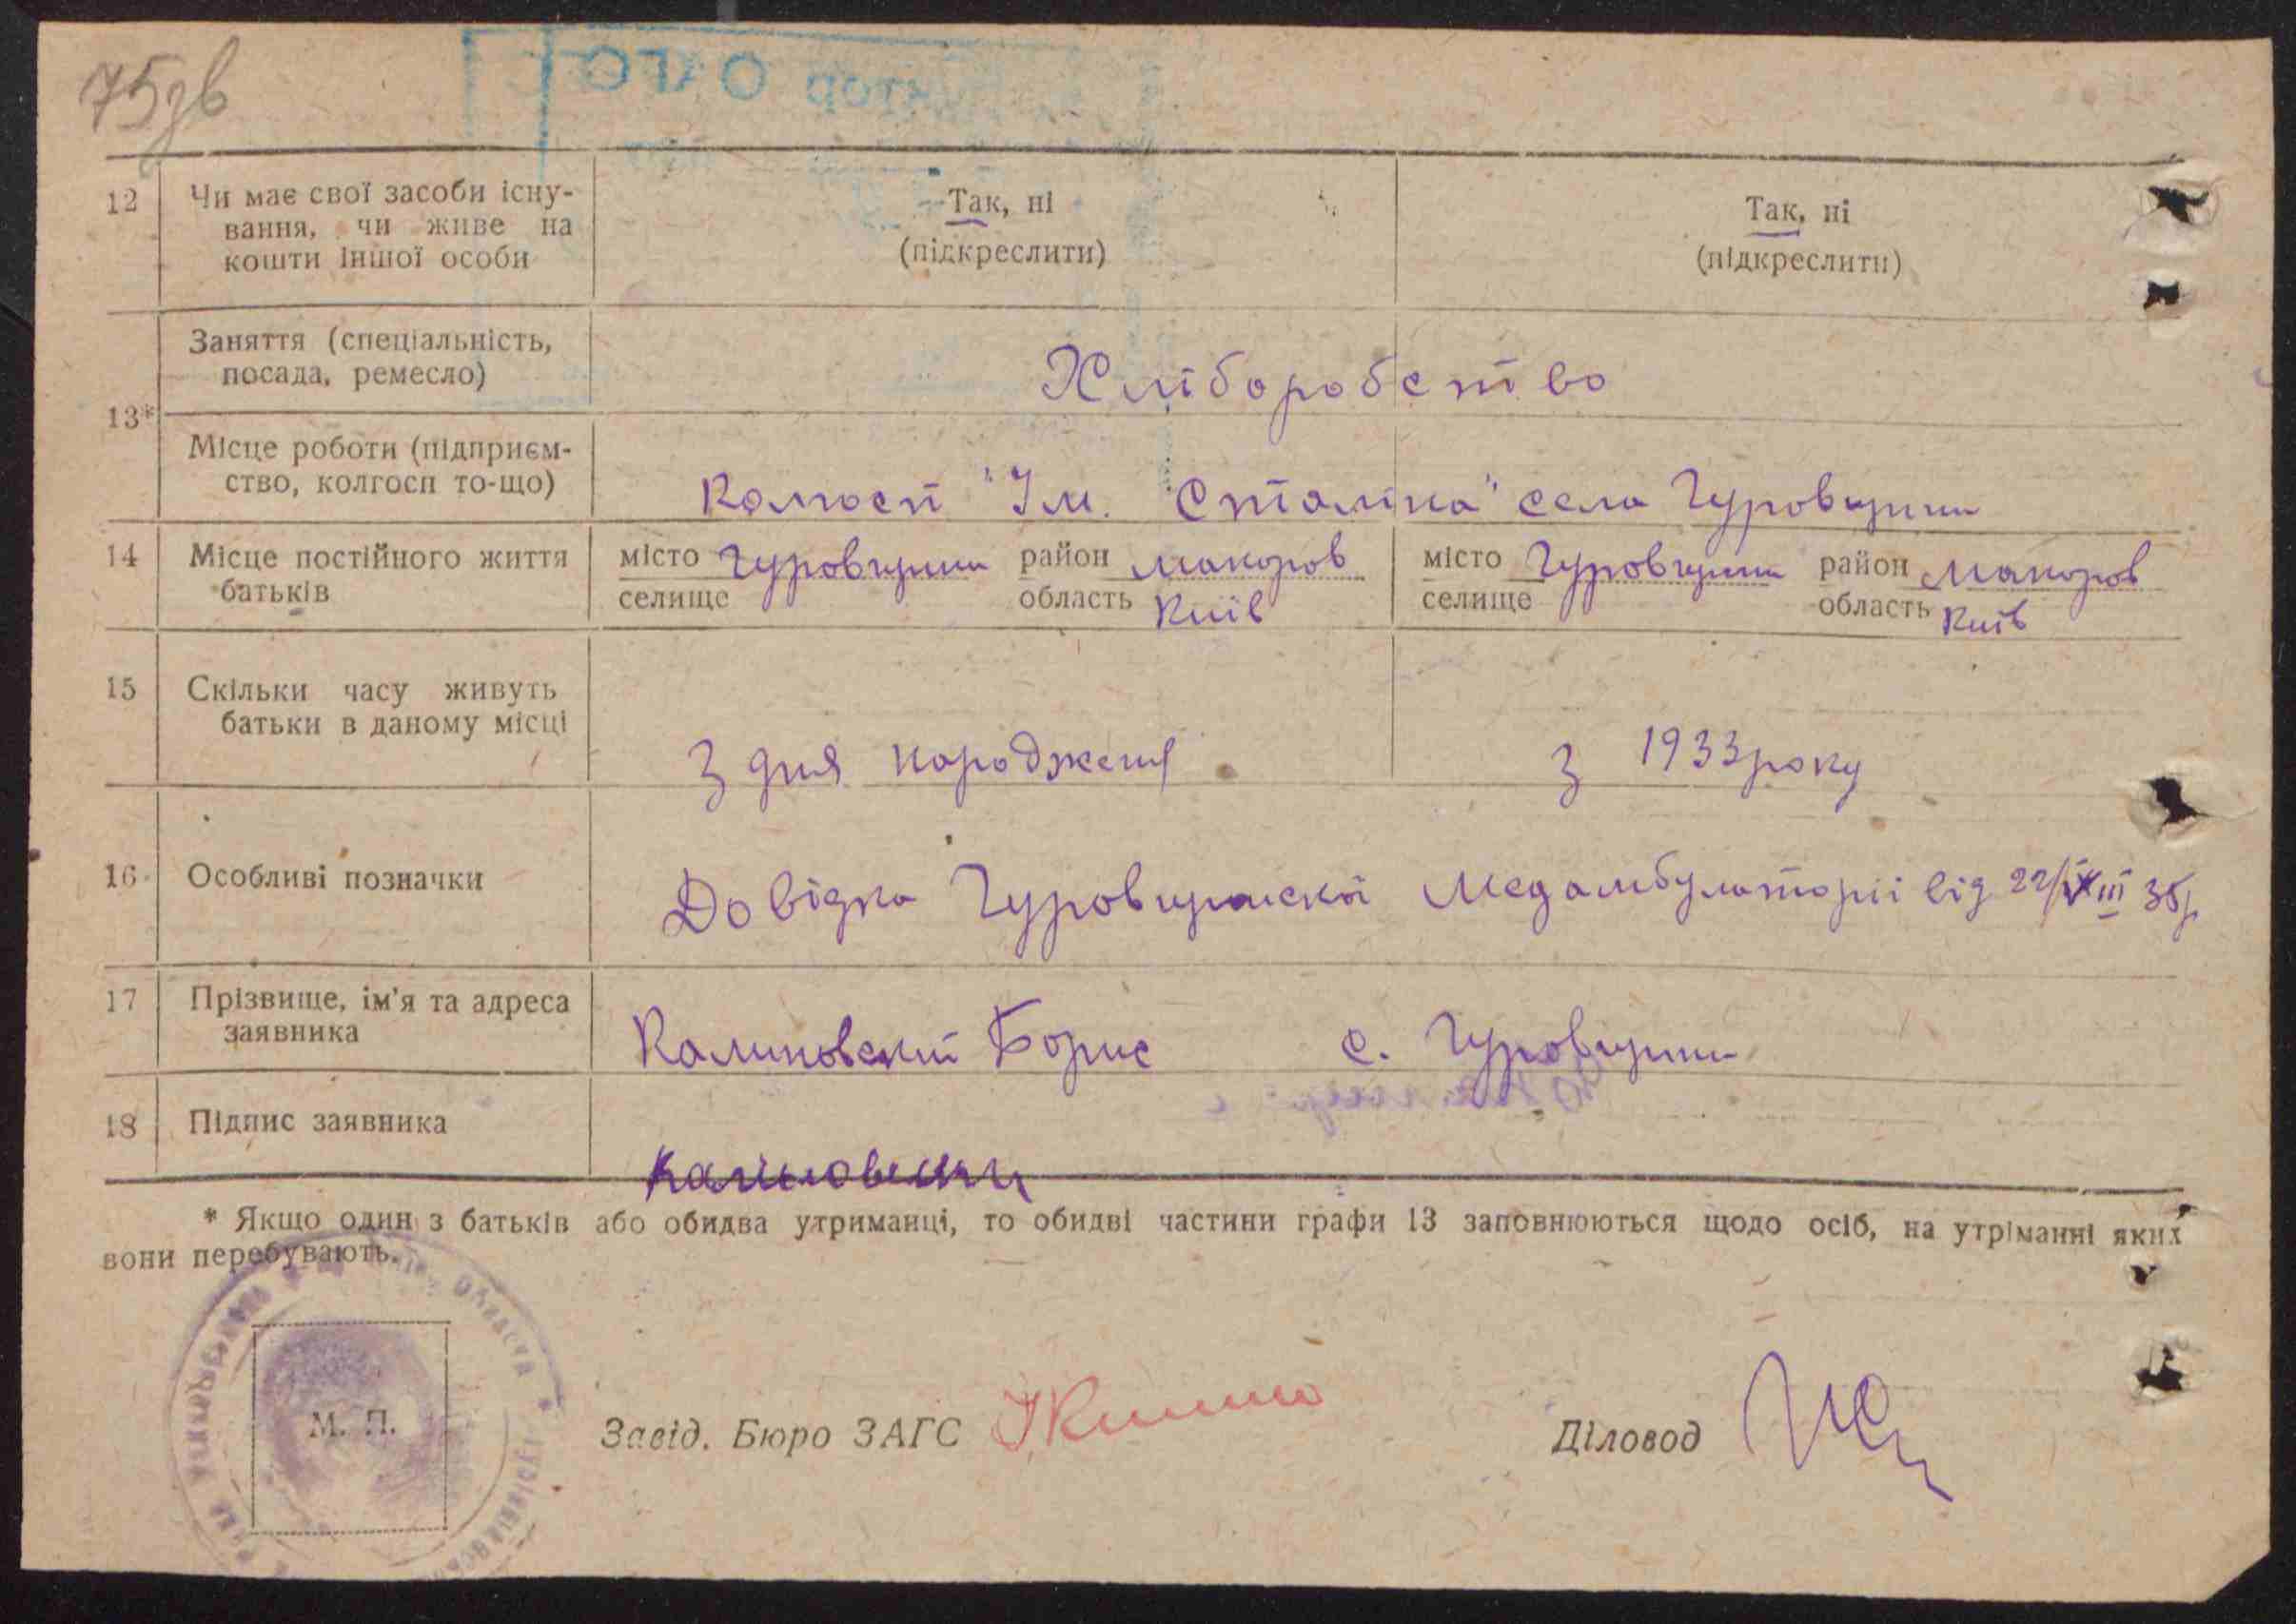 75зв
12 Чи має свої засоби існу-
вання, чи живе на
кошти іншої особи
Так, ні
(підкреслити)
Так, ні
(підкреслити)
13*
Заняття (спеціальність,
посада, ремесло)
Хліборобство
Місце роботи (підприєм-
ство, колгосп то-що)
Колгосп "Ім. Сталіна" села Гуровщини
14 Місце постійного життя
батьків
місто Гуровщини район Макаров
селище область Київ
місто Гуровщини район Макаров
селище область Київ
15 Скільки часу живуть
батьки в даному місці
З дня народженя
З 1933 року
16 Особливі позначки
Довідка Гуровщинскої Медамбулаторії від 22/III 35р
17 Прізвище, ім'я та адреса
заявника
Калиновский Борис с. Гуровщини
18 Підпис заявника
Калиновский
* Якщо один з батьків або обидва утриманці, то обидві частини графи 13 заповнюються щодо осіб, на утріманні яких
вони перебувають.
М. П.
Завід. Бюро ЗАГС
Діловод